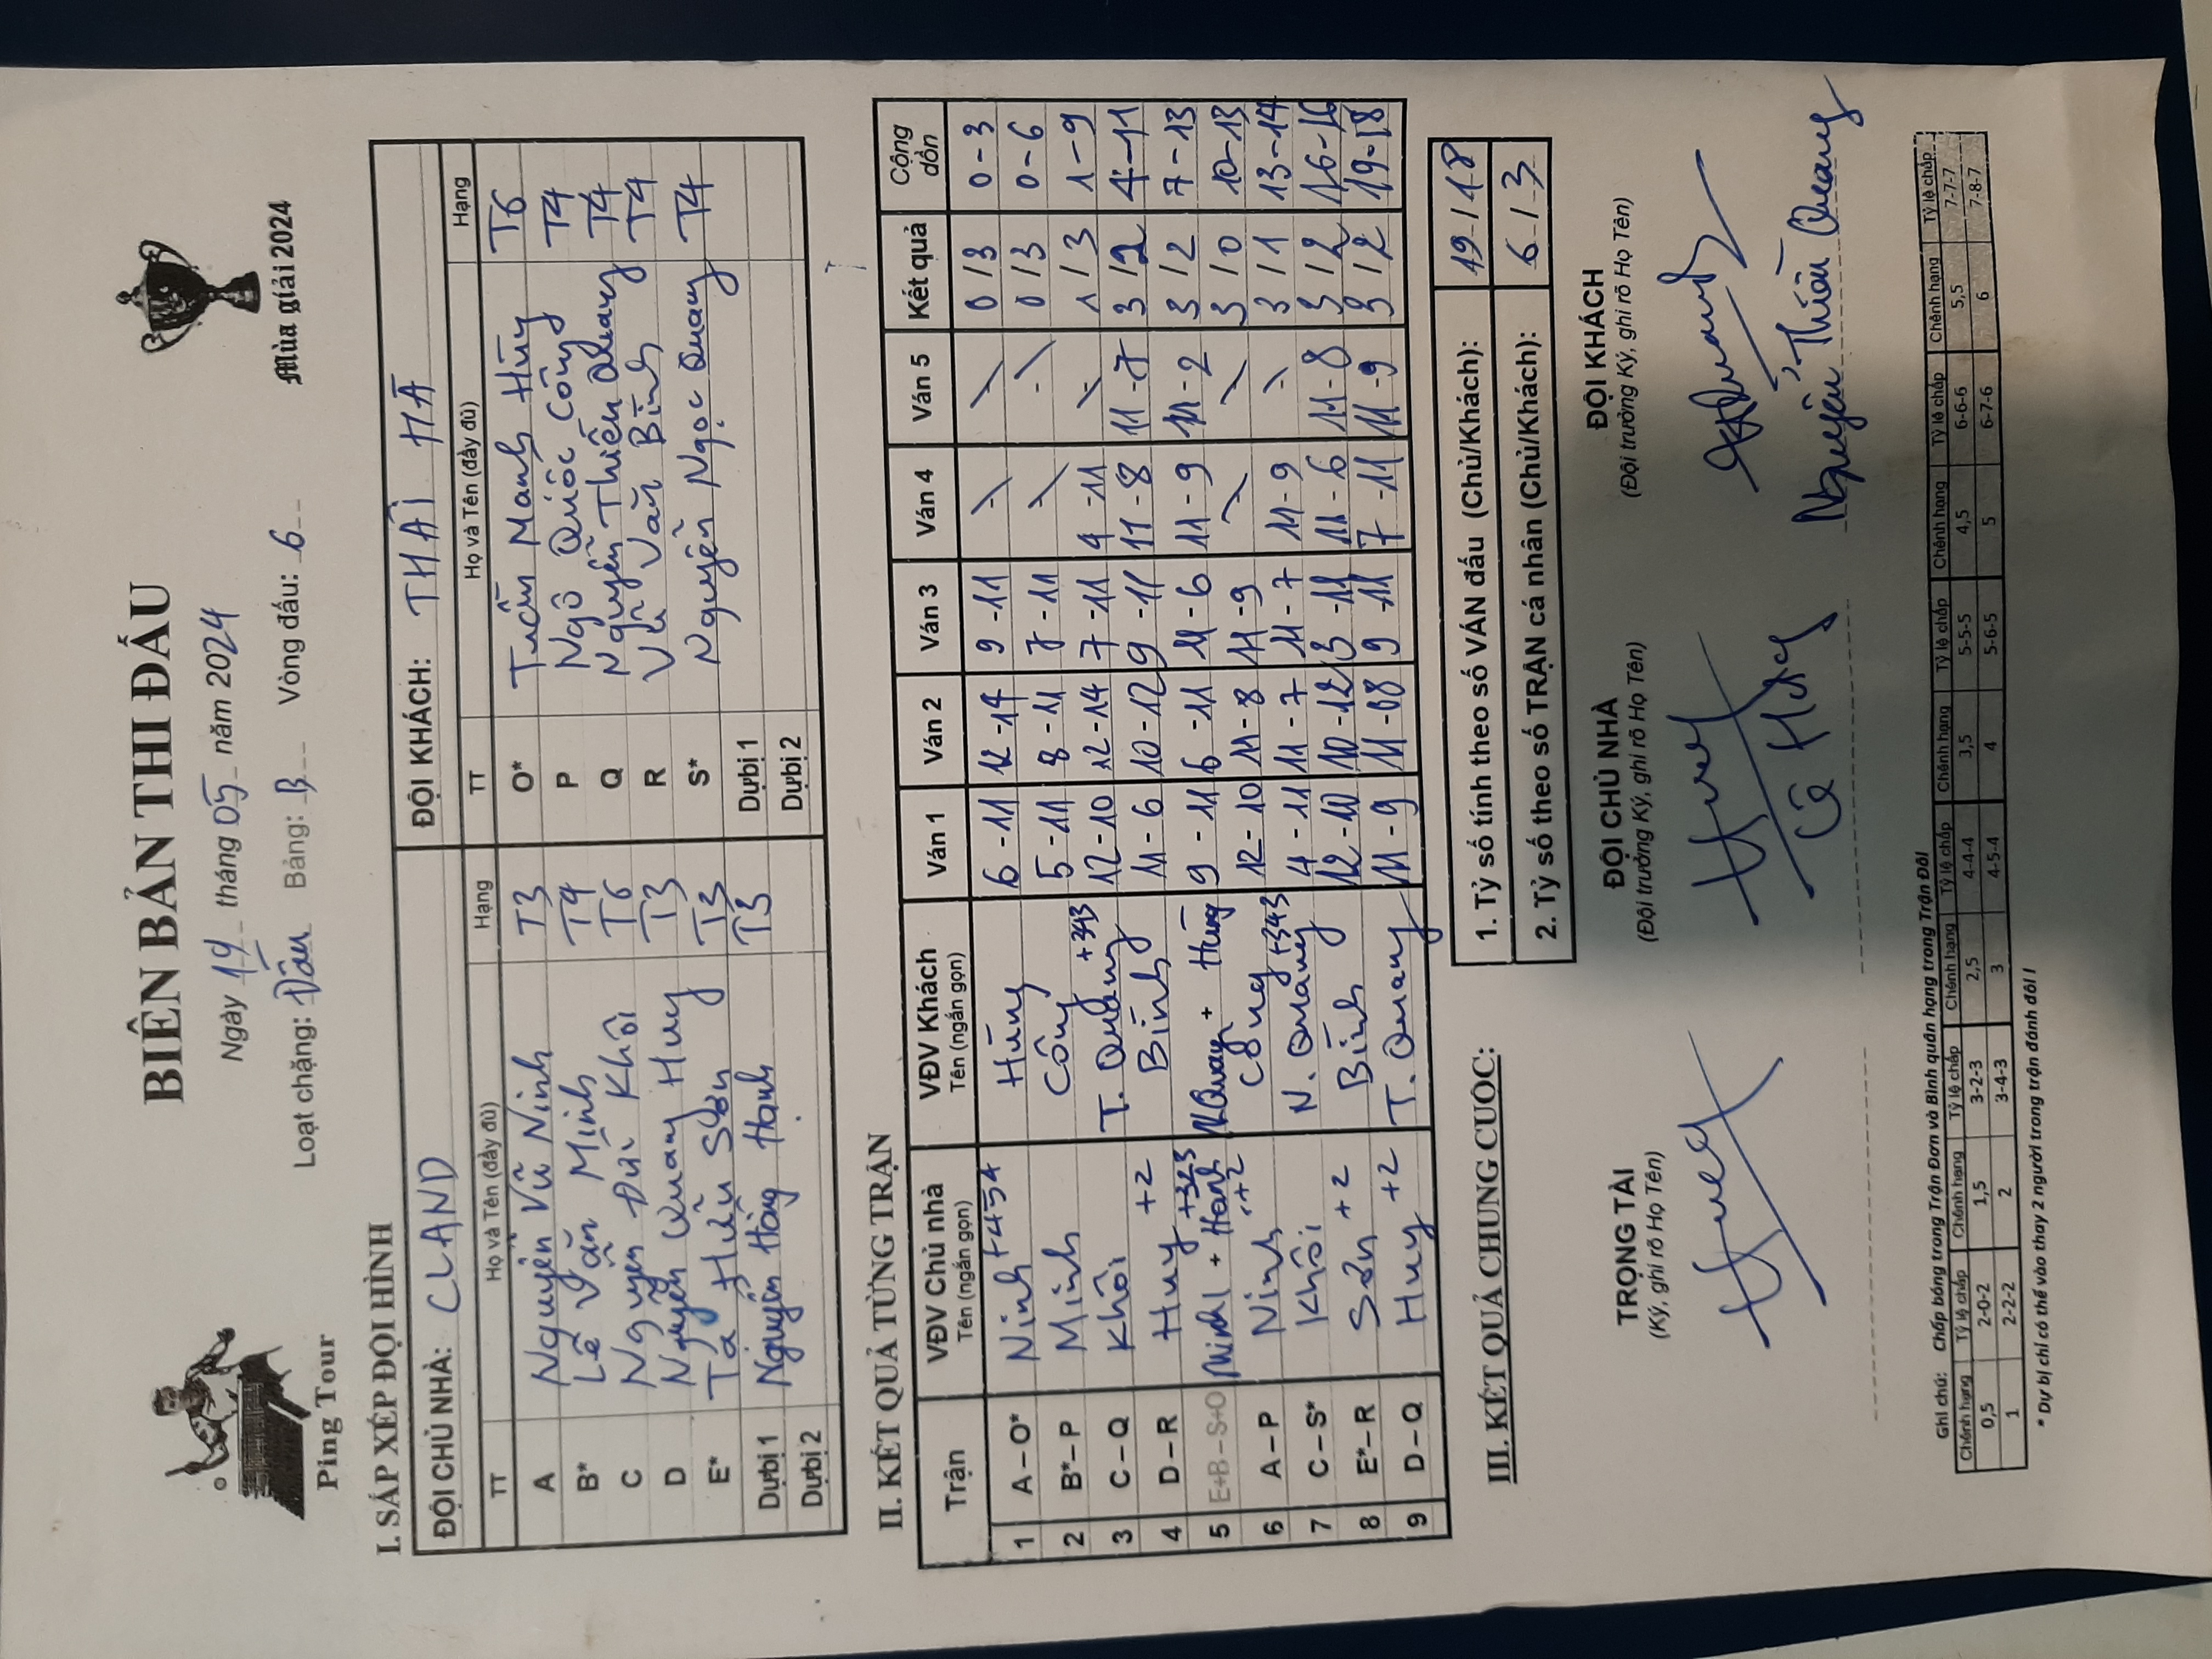 Ping Tour
BIÊN BẢN THI ĐẤU
Ngày 19 tháng 05 năm 2024
Loạt chặng: Đầu Bảng: B Vòng đấu: 6
Mùa giải 2024
I. SẮP XẾP ĐỘI HÌNH
ĐỘI CHỦ NHÀ: CLAND ĐỘI KHÁCH: THÁI HÀ
TT Họ và Tên (đầy đủ) Hạng TT Họ và Tên (đầy đủ) Hạng
A Nguyễn Vũ Ninh T3 O* Tuấn Mạnh Hùng T6
B* Lê Văn Minh T4 P Ngô Quốc Công T4
C Nguyễn Đức Khôi T6 Q Nguyễn Thiến Quang T4
D Nguyễn Quang Huy T3 R Vũ Văn Bính T4
E* Tạ Hữu Sơn T3 S* Nguyễn Ngọc Quang T4
Dự bị 1 Nguyễn Hồng Hạnh T3 Dự bị 1
Dự bị 2 Dự bị 2
II. KẾT QUẢ TỪNG TRẬN
Trận VĐV Chủ nhà Tên (ngắn gọn) VĐV Khách Tên (ngắn gọn) Ván 1 Ván 2 Ván 3 Ván 4 Ván 5 Kết quả Cộng dồn
1 A – O* Ninh +454 Hùng 6 - 11 12 - 14 9 - 11 0 / 3 0 - 3
2 B* – P Minh Công 5 - 11 8 - 11 7 - 11 0 / 3 0 - 6
3 C – Q Khôi T. Quang +343 12 - 10 12 - 14 7 - 11 4 - 11 1 / 3 1 - 9
4 D – R Huy +2 Bính 11 - 6 10 - 12 9 - 11 11 - 8 11 - 7 3 / 2 4 - 11
5 E+B – S+O Minh + Hạnh +323 N.Quang + Hùng 9 - 11 6 - 11 11 - 6 11 - 9 11 - 2 3 / 2 7 - 13
6 A – P Ninh +2 Công 12 - 10 11 - 8 11 - 9 3 / 0 10 - 13
7 C – S* Khôi N. Quang +343 4 - 11 11 - 7 11 - 7 11 - 9 3 / 1 13 - 14
8 E* – R Sơn +2 Bính 12 - 10 10 - 12 3 - 11 11 - 6 11 - 8 3 / 2 16 - 16
9 D – Q Huy +2 T. Quang 11 - 9 11 - 08 9 - 11 7 - 11 11 - 9 3 / 2 19 - 18
III. KẾT QUẢ CHUNG CUỘC:
1. Tỷ số tính theo số VÁN đấu (Chủ/Khách): 19 / 18
2. Tỷ số theo số TRẬN cá nhân (Chủ/Khách): 6 / 3
TRỌNG TÀI ĐỘI CHỦ NHÀ ĐỘI KHÁCH
(Ký, ghi rõ Họ Tên) (Đội trưởng Ký, ghi rõ Họ Tên) (Đội trưởng Ký, ghi rõ Họ Tên)
Nguyễn Thiến Quang
Ghi chú: Chấp bóng trong Trận Đơn và Bình quân hạng trong Trận Đôi
Chênh hạng Tỷ lệ chấp Chênh hạng Tỷ lệ chấp Chênh hạng Tỷ lệ chấp Chênh hạng Tỷ lệ chấp Chênh hạng Tỷ lệ chấp Chênh hạng Tỷ lệ chấp
0,5 2-0-2 1,5 3-2-3 2,5 4-4-4 3,5 5-5-5 4,5 6-6-6 5,5 7-7-7
1 2-2-2 2 3-4-3 3 4-5-4 4 5-6-5 5 6-7-6 6 7-8-7
* Dự bị chỉ có thể vào thay 2 người trong trận đánh đôi !